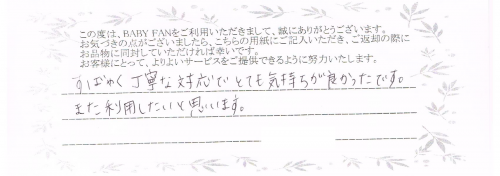 この度は、BABY FANをご利用いただきまして、誠にありがとうございます。
お気づきの点がございましたら、こちらの用紙にご記入いただき、ご返却の際に
お品物に同封していただければ幸いです。
お客様にとって、よりよいサービスをご提供できるように努力いたします。
すばやく丁寧な対応でとても気持ちが良かったです。
また利用したいと思います。